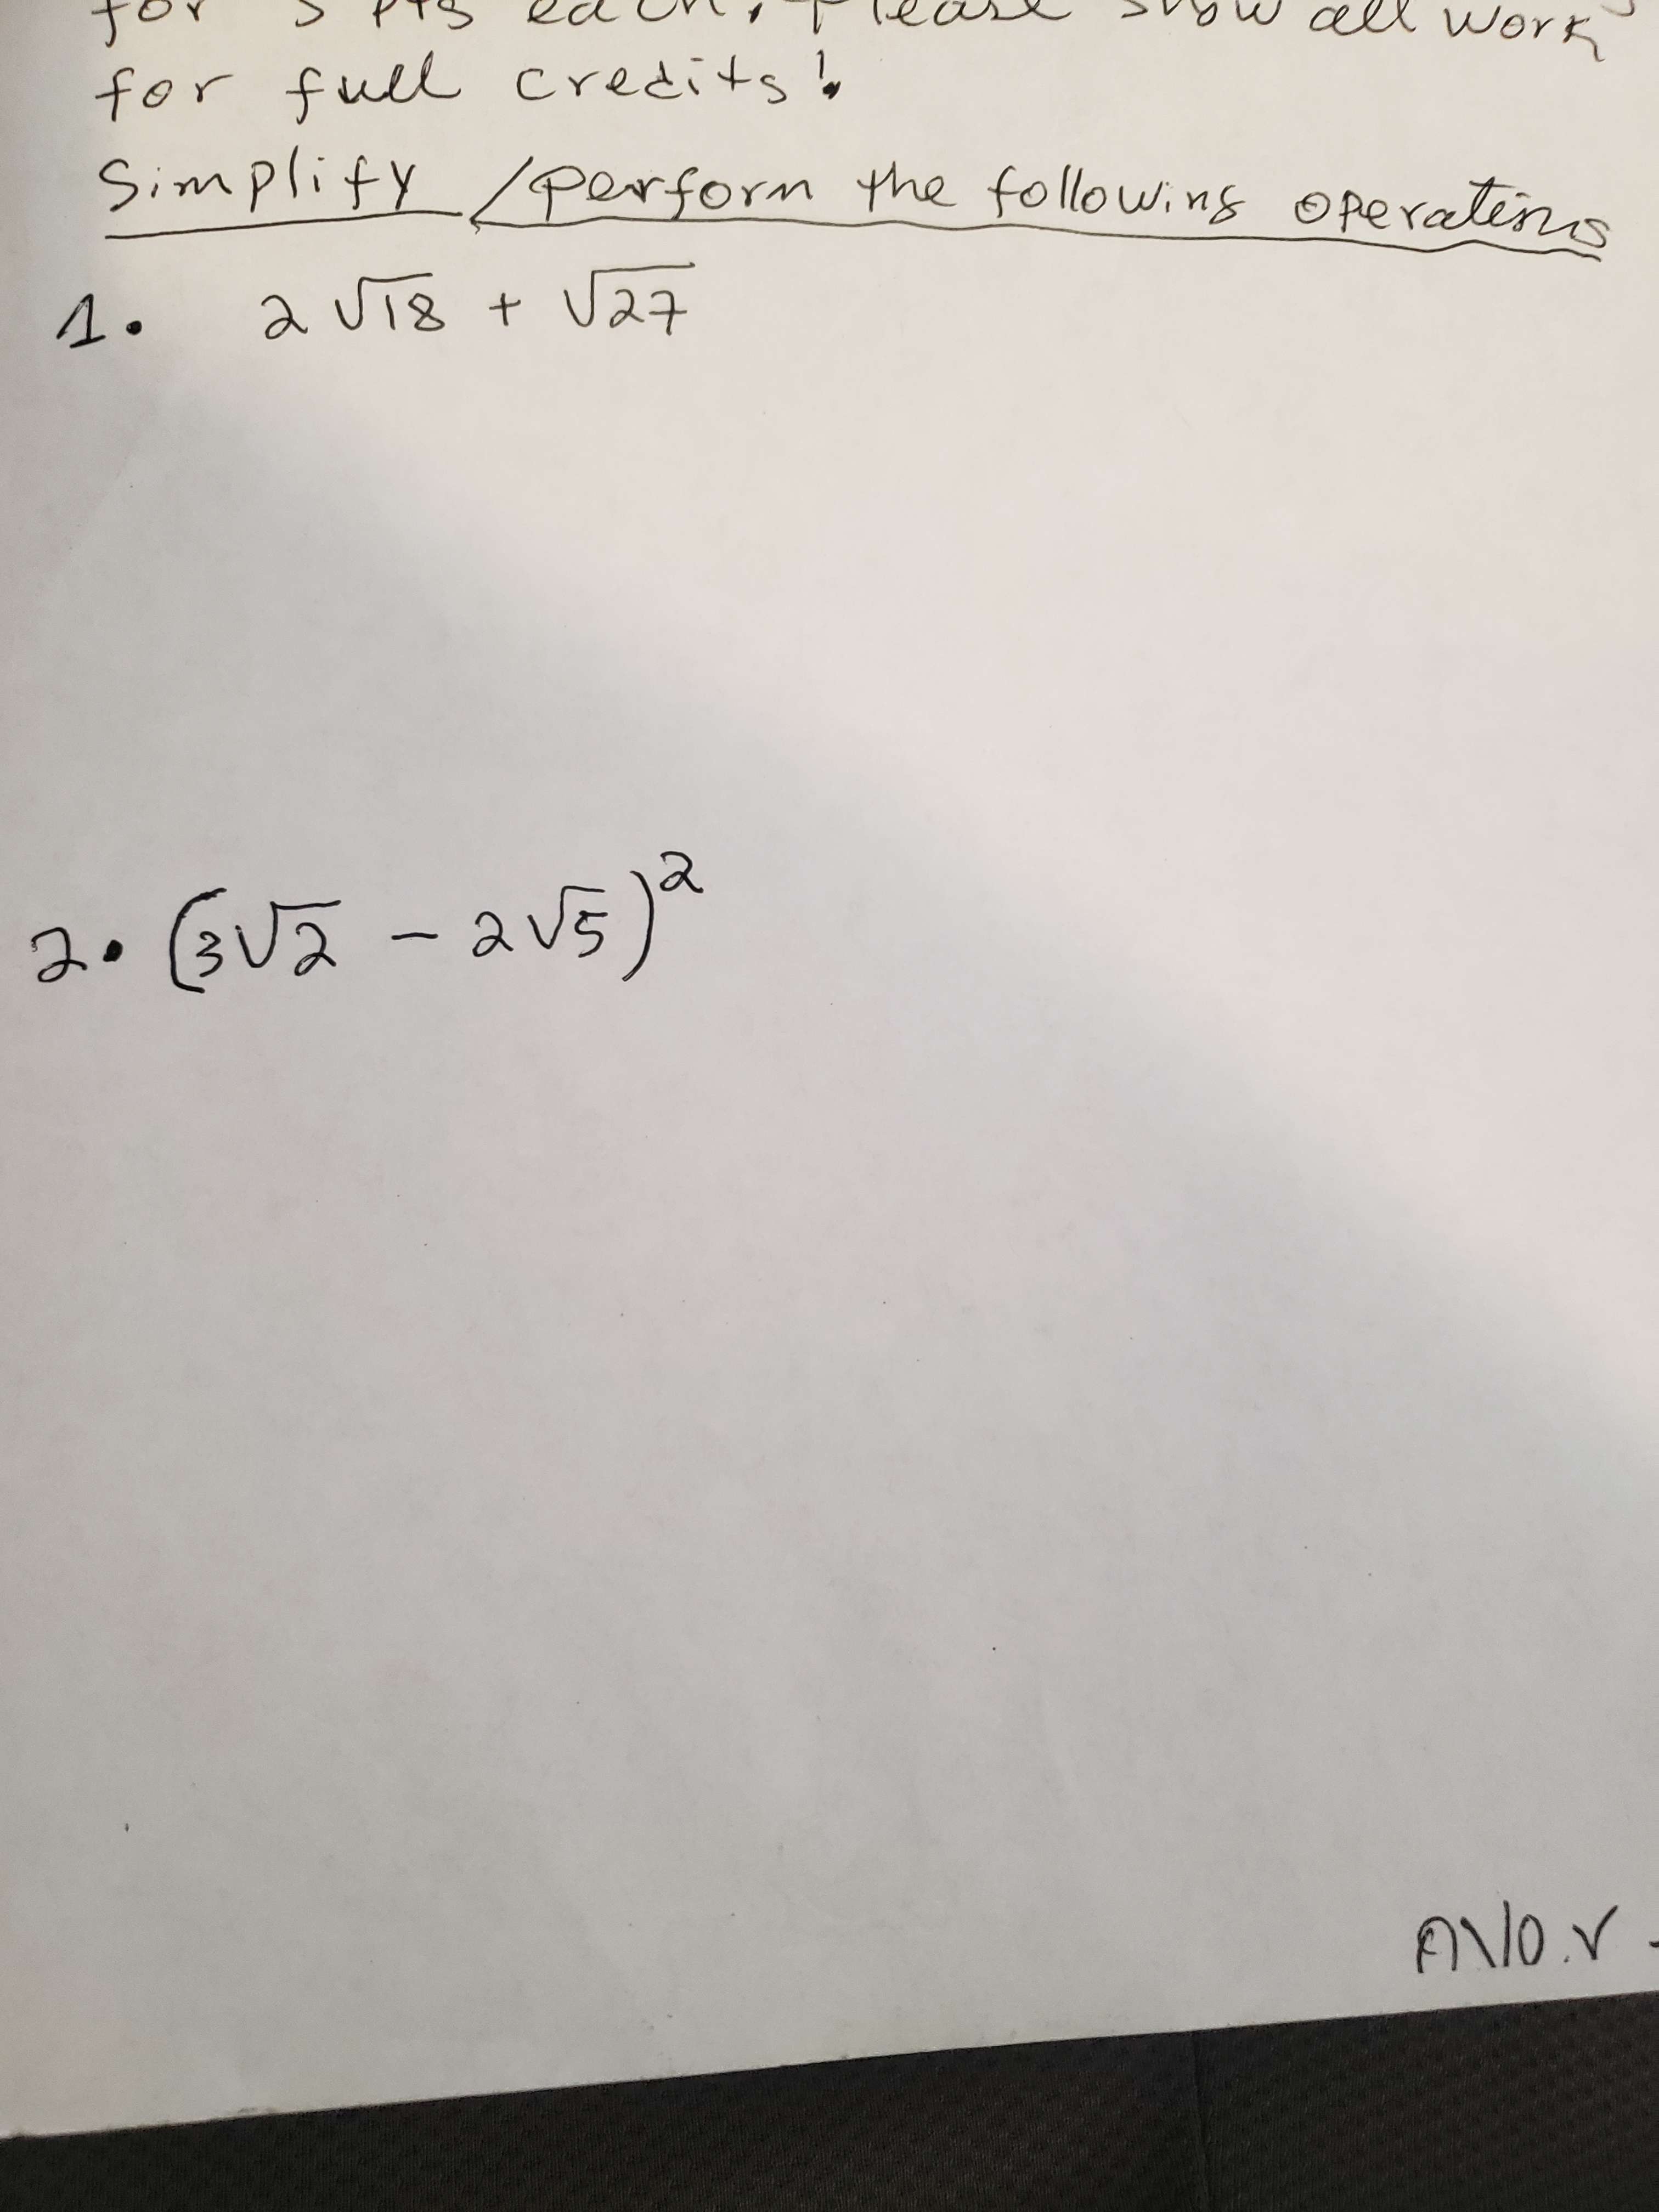 for 5 pts each. Please show all work
for full credits!
Simplify / Perform the following operations
1. 2√18 + √27
2. (3√2 - 2√5)²